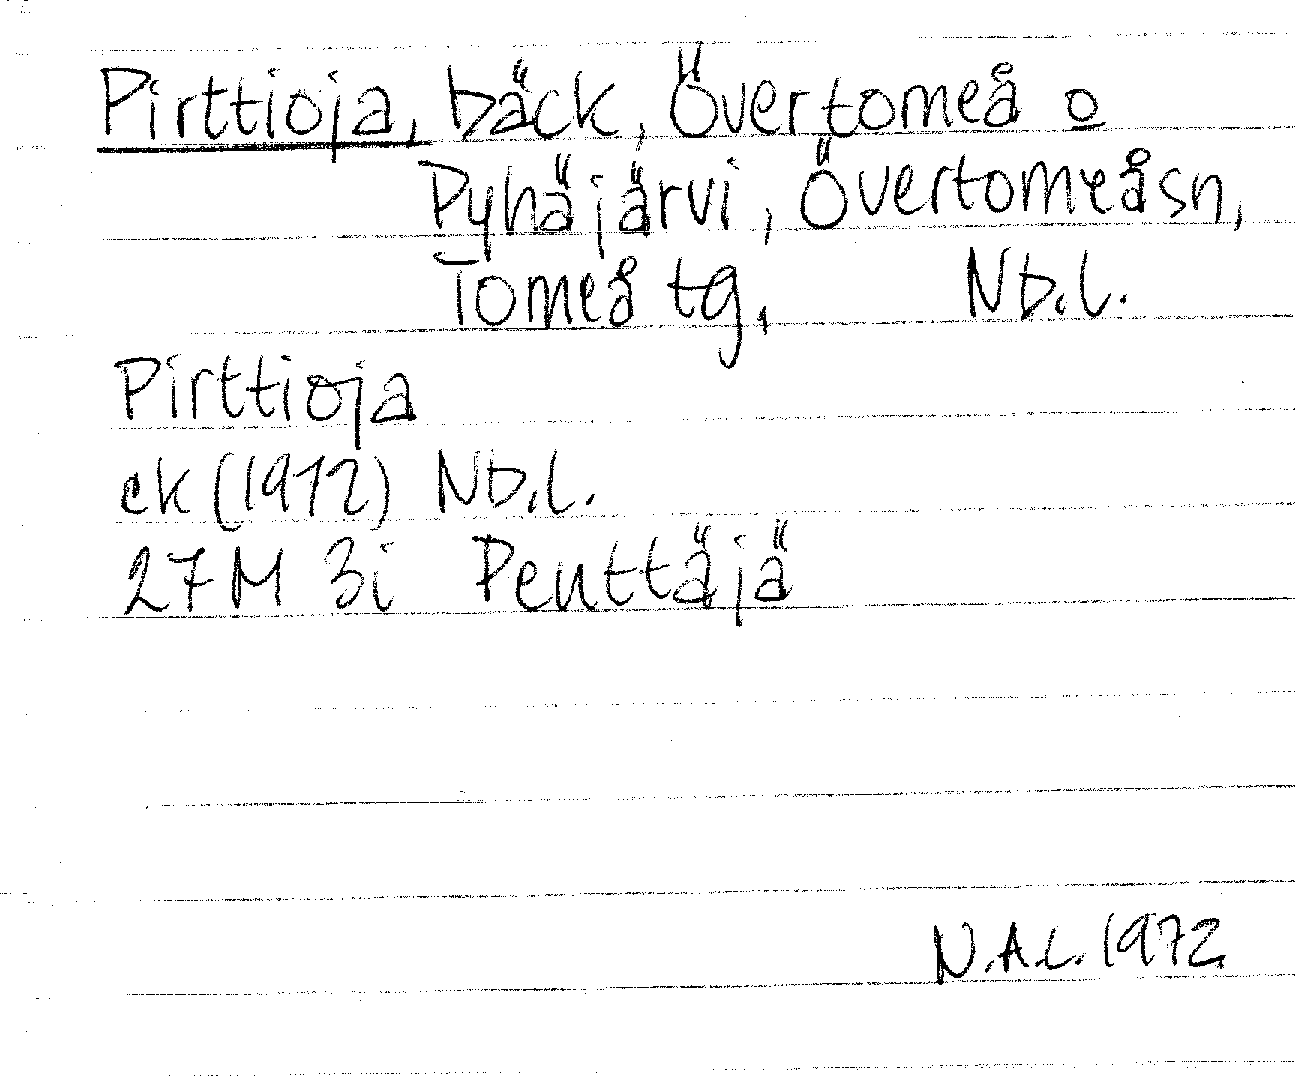 Pirttioja, bäck, Övertorneå o
Pyhäjärvi, Övertorneåsn,
Torneå tg, Nb.l.
Pirttioja
ek (1972) Nb.l.
27M 3i Penttäjä
N.A.L. 1972